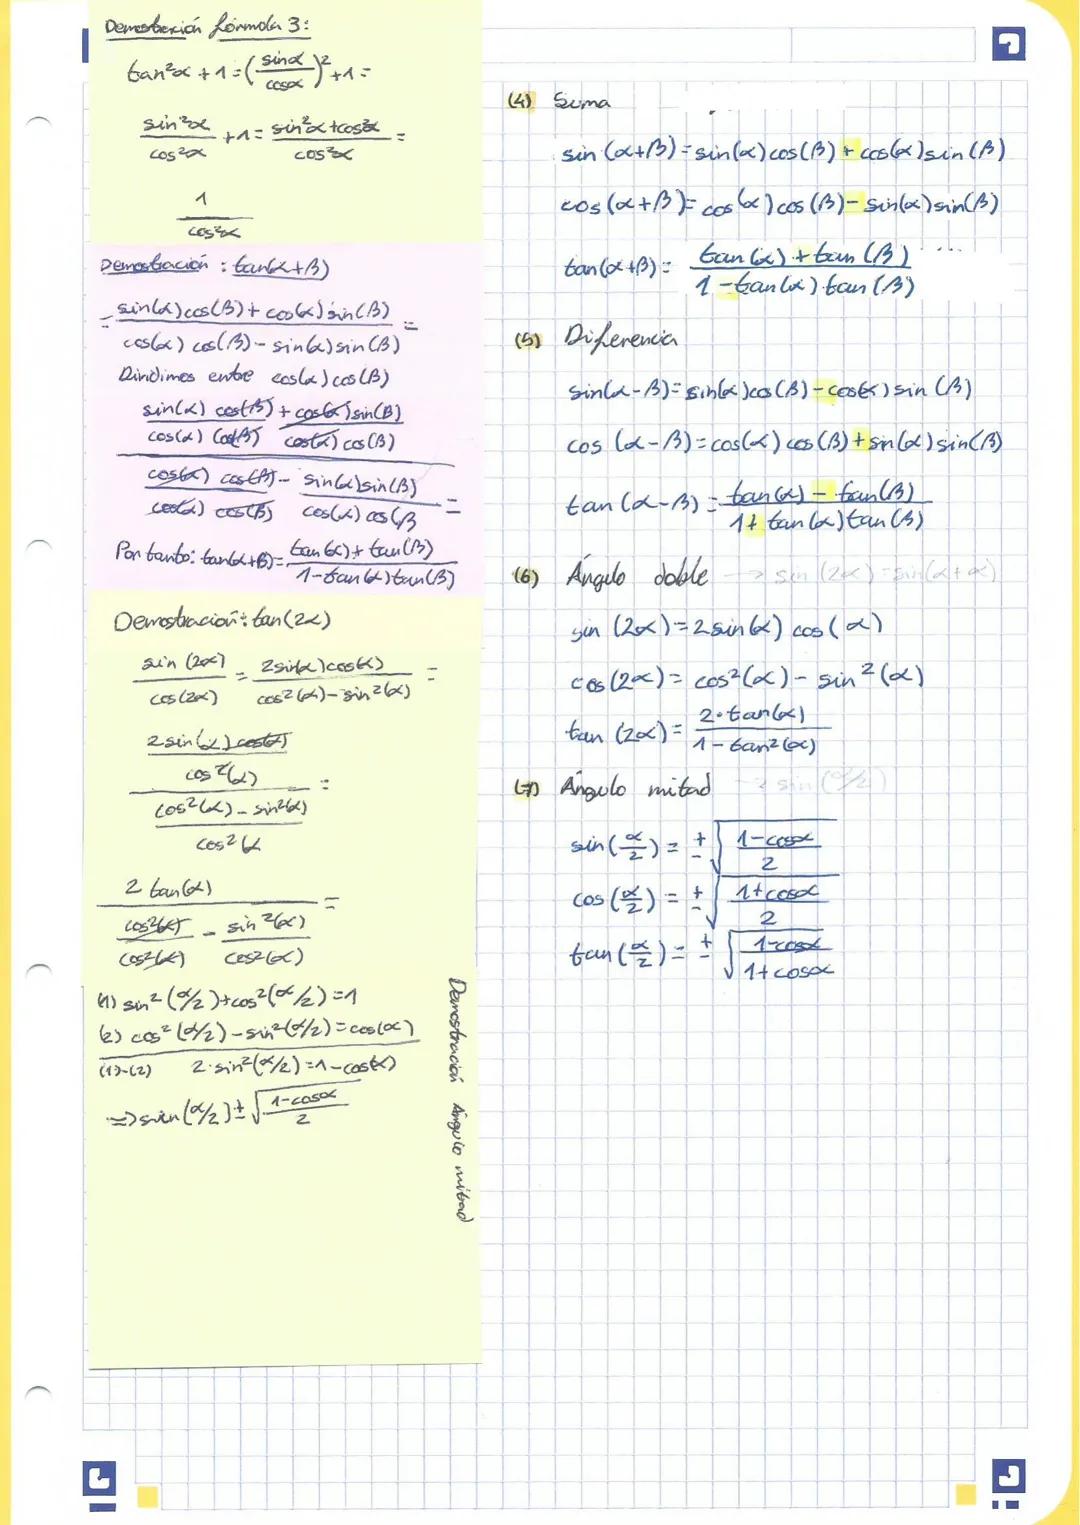 Demostración fórmula 3:
tan²α + 1 = (sinα/cosα)² + 1 =
sin²α/cos²α + 1 = (sin²α + cos²α)/cos²α =
1/cos²α
Demostración : tan(α+β)
= (sin(α)cos(β) + cos(α)sin(β))/(cos(α)cos(β) - sin(α)sin(β)) =
Dividimos entre cos(α)cos(β)
sin(α) cos(β) + cos(α)sin(β)
cos(α) cos(β) cos(α) cos(β)
cos(α) cos(β) - sin(α)sin(β) =
cos(α) cos(β) cos(α) cos(β
Por tanto: tan(α+β) = (tan(α) + tan(β))/(1 - tan(α)tan(β))
Demostración: tan(2α)
sin(2α)/cos(2α) = 2sin(α)cos(α)/(cos²(α) - sin²(α)) =
2sin(α)cos(α)
cos²(α)
=
cos²(α) - sin²(α)
cos²(α
2 tan(α)
=
cos²(α)/cos²(α) - sin²(α)/cos²(α)
(1) sin²(α/2) + cos²(α/2) = 1
(2) cos²(α/2) - sin²(α/2) = cos(α)
(1)-(2) 2·sin²(α/2) = 1 - cos(α)
=> sin(α/2) ± √((1-cosα)/2)
Demostración Ángulo mitad
(4) Suma
sin(α+β) = sin(α)cos(β) + cos(α)sin(β)
cos(α+β) = cos(α)cos(β) - sin(α)sin(β)
tan(α+β) = (tan(α) + tan(β))/(1 - tan(α)·tan(β))
(5) Diferencia
sin(α-β) = sin(α)cos(β) - cos(α)sin(β)
cos(α-β) = cos(α)cos(β) + sin(α)sin(β)
tan(α-β) = (tan(α) - tan(β))/(1 + tan(α)tan(β))
(6) Ángulo doble → sin(2α) = sin(α+α)
sin(2α) = 2sin(α)cos(α)
cos(2α) = cos²(α) - sin²(α)
tan(2α) = 2·tan(α)/(1 - tan²(α))
(7) Ángulo mitad → sin(α/2)
sin(α/2) = ±√((1-cosα)/2)
cos(α/2) = ±√((1+cosα)/2)
tan(α/2) = ±√((1-cosα)/(1+cosα))